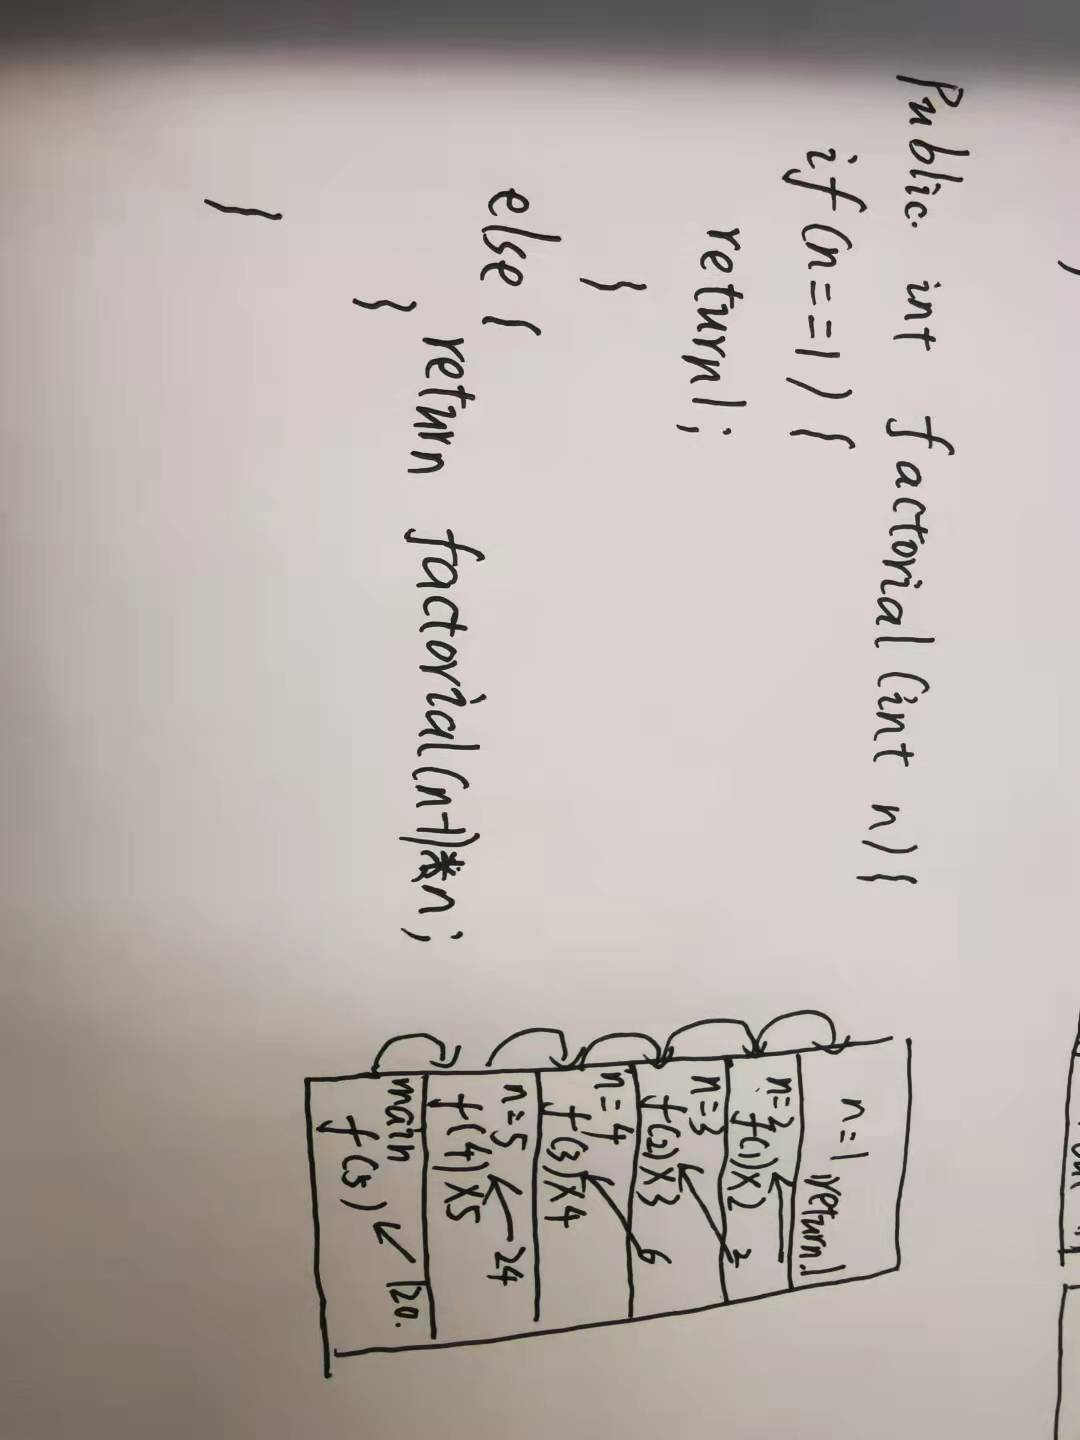 Public int factorial(int n){
if(n==1){
return1;
}
else{
return factorial(n-1)*n;
}
}
n=1 return1
n=2
f(1)X2
n=3 2
f(2)X3
n=4 6
f(3)X4
n=5 24
f(4)X5
main 120.
f(5)